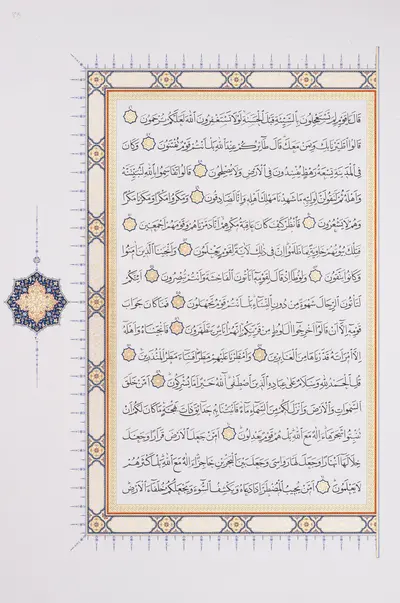 قَالَ يَا قَوْمِ لِمَ تَسْتَعْجِلُونَ بِالسَّيِّئَةِ قَبْلَ الْحَسَنَةِ لَوْلَا تَسْتَغْفِرُونَ اللَّهَ لَعَلَّكُمْ تُرْحَمُونَ
قَالُوا اطَّيَّرْنَا بِكَ وَبِمَنْ مَعَكَ قَالَ طَائِرُكُمْ عِنْدَ اللَّهِ بَلْ أَنْتُمْ قَوْمٌ تُفْتَنُونَ وَكَانَ
فِي الْمَدِينَةِ تِسْعَةُ رَهْطٍ يُفْسِدُونَ فِي الْأَرْضِ وَلَا يُصْلِحُونَ قَالُوا تَقَاسَمُوا بِاللَّهِ لَنُبَيِّتَنَّهُ
وَأَهْلَهُ ثُمَّ لَنَقُولَنَّ لِوَلِيِّهِ مَا شَهِدْنَا مَهْلِكَ أَهْلِهِ وَإِنَّا لَصَادِقُونَ وَمَكَرُوا مَكْرًا وَمَكَرْنَا مَكْرًا
وَهُمْ لَا يَشْعُرُونَ فَانْظُرْ كَيْفَ كَانَ عَاقِبَةُ مَكْرِهِمْ أَنَّا دَمَّرْنَاهُمْ وَقَوْمَهُمْ أَجْمَعِينَ
فَتِلْكَ بُيُوتُهُمْ خَاوِيَةً بِمَا ظَلَمُوا إِنَّ فِي ذَلِكَ لَآيَةً لِقَوْمٍ يَعْلَمُونَ وَأَنْجَيْنَا الَّذِينَ آمَنُوا
وَكَانُوا يَتَّقُونَ وَلُوطًا إِذْ قَالَ لِقَوْمِهِ أَتَأْتُونَ الْفَاحِشَةَ وَأَنْتُمْ تُبْصِرُونَ أَئِنَّكُمْ
لَتَأْتُونَ الرِّجَالَ شَهْوَةً مِنْ دُونِ النِّسَاءِ بَلْ أَنْتُمْ قَوْمٌ تَجْهَلُونَ فَمَا كَانَ جَوَابَ
قَوْمِهِ إِلَّا أَنْ قَالُوا أَخْرِجُوا آلَ لُوطٍ مِنْ قَرْيَتِكُمْ إِنَّهُمْ أُنَاسٌ يَتَطَهَّرُونَ فَأَنْجَيْنَاهُ وَأَهْلَهُ
إِلَّا امْرَأَتَهُ قَدَّرْنَاهَا مِنَ الْغَابِرِينَ وَأَمْطَرْنَا عَلَيْهِمْ مَطَرًا فَسَاءَ مَطَرُ الْمُنْذَرِينَ
قُلِ الْحَمْدُ لِلَّهِ وَسَلَامٌ عَلَى عِبَادِهِ الَّذِينَ اصْطَفَى آللَّهُ خَيْرٌ أَمَّا يُشْرِكُونَ أَمَّنْ خَلَقَ
السَّمَوَاتِ وَالْأَرْضَ وَأَنْزَلَ لَكُمْ مِنَ السَّمَاءِ مَاءً فَأَنْبَتْنَا بِهِ حَدَائِقَ ذَاتَ بَهْجَةٍ مَا كَانَ لَكُمْ أَنْ
تُنْبِتُوا شَجَرَهَا أَإِلَهٌ مَعَ اللَّهِ بَلْ هُمْ قَوْمٌ يَعْدِلُونَ أَمَّنْ جَعَلَ الْأَرْضَ قَرَارًا وَجَعَلَ
خِلَالَهَا أَنْهَارًا وَجَعَلَ لَهَا رَوَاسِيَ وَجَعَلَ بَيْنَ الْبَحْرَيْنِ حَاجِزًا أَإِلَهٌ مَعَ اللَّهِ بَلْ أَكْثَرُهُمْ
لَا يَعْلَمُونَ أَمَّنْ يُجِيبُ الْمُضْطَرَّ إِذَا دَعَاهُ وَيَكْشِفُ السُّوءَ وَيَجْعَلُكُمْ خُلَفَاءَ الْأَرْضِ